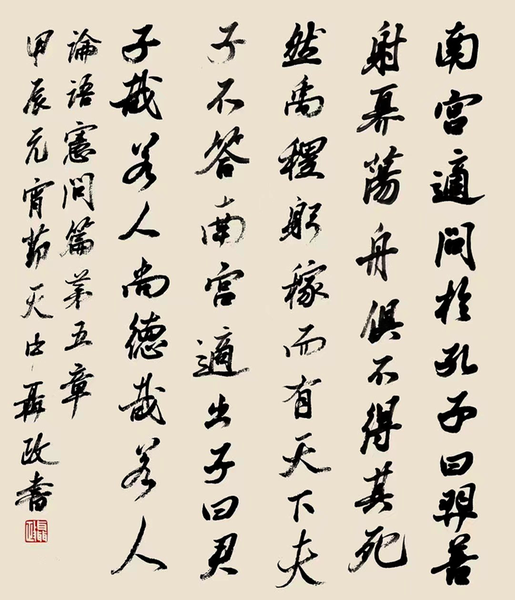 南宫適问於孔子曰羿善
射奡荡舟俱不得其死
然禹稷躬稼而有天下夫
子不答南宫適出子曰君
子哉若人尚德哉若人
論語憲问篇第五章
甲辰元宵节 聂政書